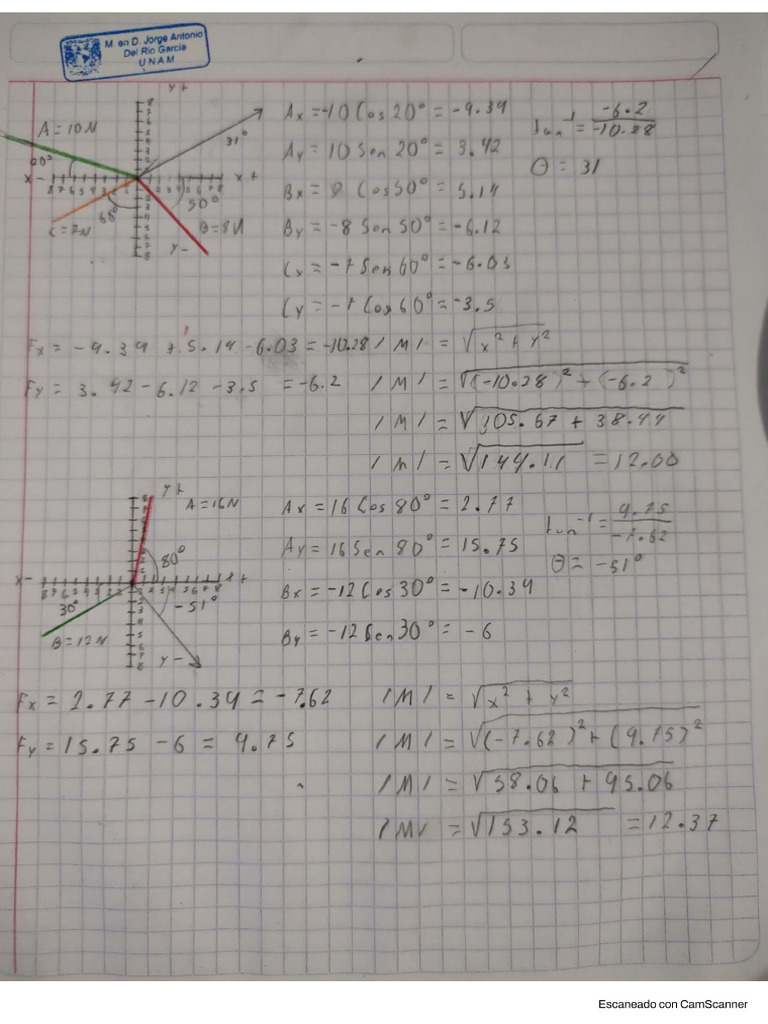 M. en D. Jorge Antonio
Del Rio Garcia
UNAM
Y+
A = 10N
20°
31°
X-
X+
8 7 6 5 4 3 2 1
60°
50°
C = 7N
B = 8N
Y-
Ax = -10 Cos 20° = -9.39
Ay = 10 Sen 20° = 3.42
Bx = 8 Cos 50° = 5.14
By = -8 Sen 50° = -6.12
Cx = -7 Sen 60° = -6.03
Cy = -7 Cos 60° = -3.5
tan⁻¹ = -6.2 / -10.28
θ = 31
Fx = -9.39 + 5.14 - 6.03 = -10.28
Fy = 3.42 - 6.12 - 3.5 = -6.2
/M/ = √x² + y²
/M/ = √(-10.28)² + (-6.2)²
/M/ = √105.67 + 38.44
/M/ = √144.11 = 12.00
Y+
A = 16N
80°
X-
X+
30°
-51°
B = 12N
Y-
Ax = 16 Cos 80° = 2.77
Ay = 16 Sen 80° = 15.75
Bx = -12 Cos 30° = -10.39
By = -12 Sen 30° = -6
tan⁻¹ = 9.75 / -7.62
θ = -51°
Fx = 2.77 - 10.39 = -7.62
Fy = 15.75 - 6 = 9.75
/M/ = √x² + y²
/M/ = √(-7.62)² + (9.75)²
/M/ = √58.06 + 95.06
/M/ = √153.12 = 12.37
Escaneado con CamScanner